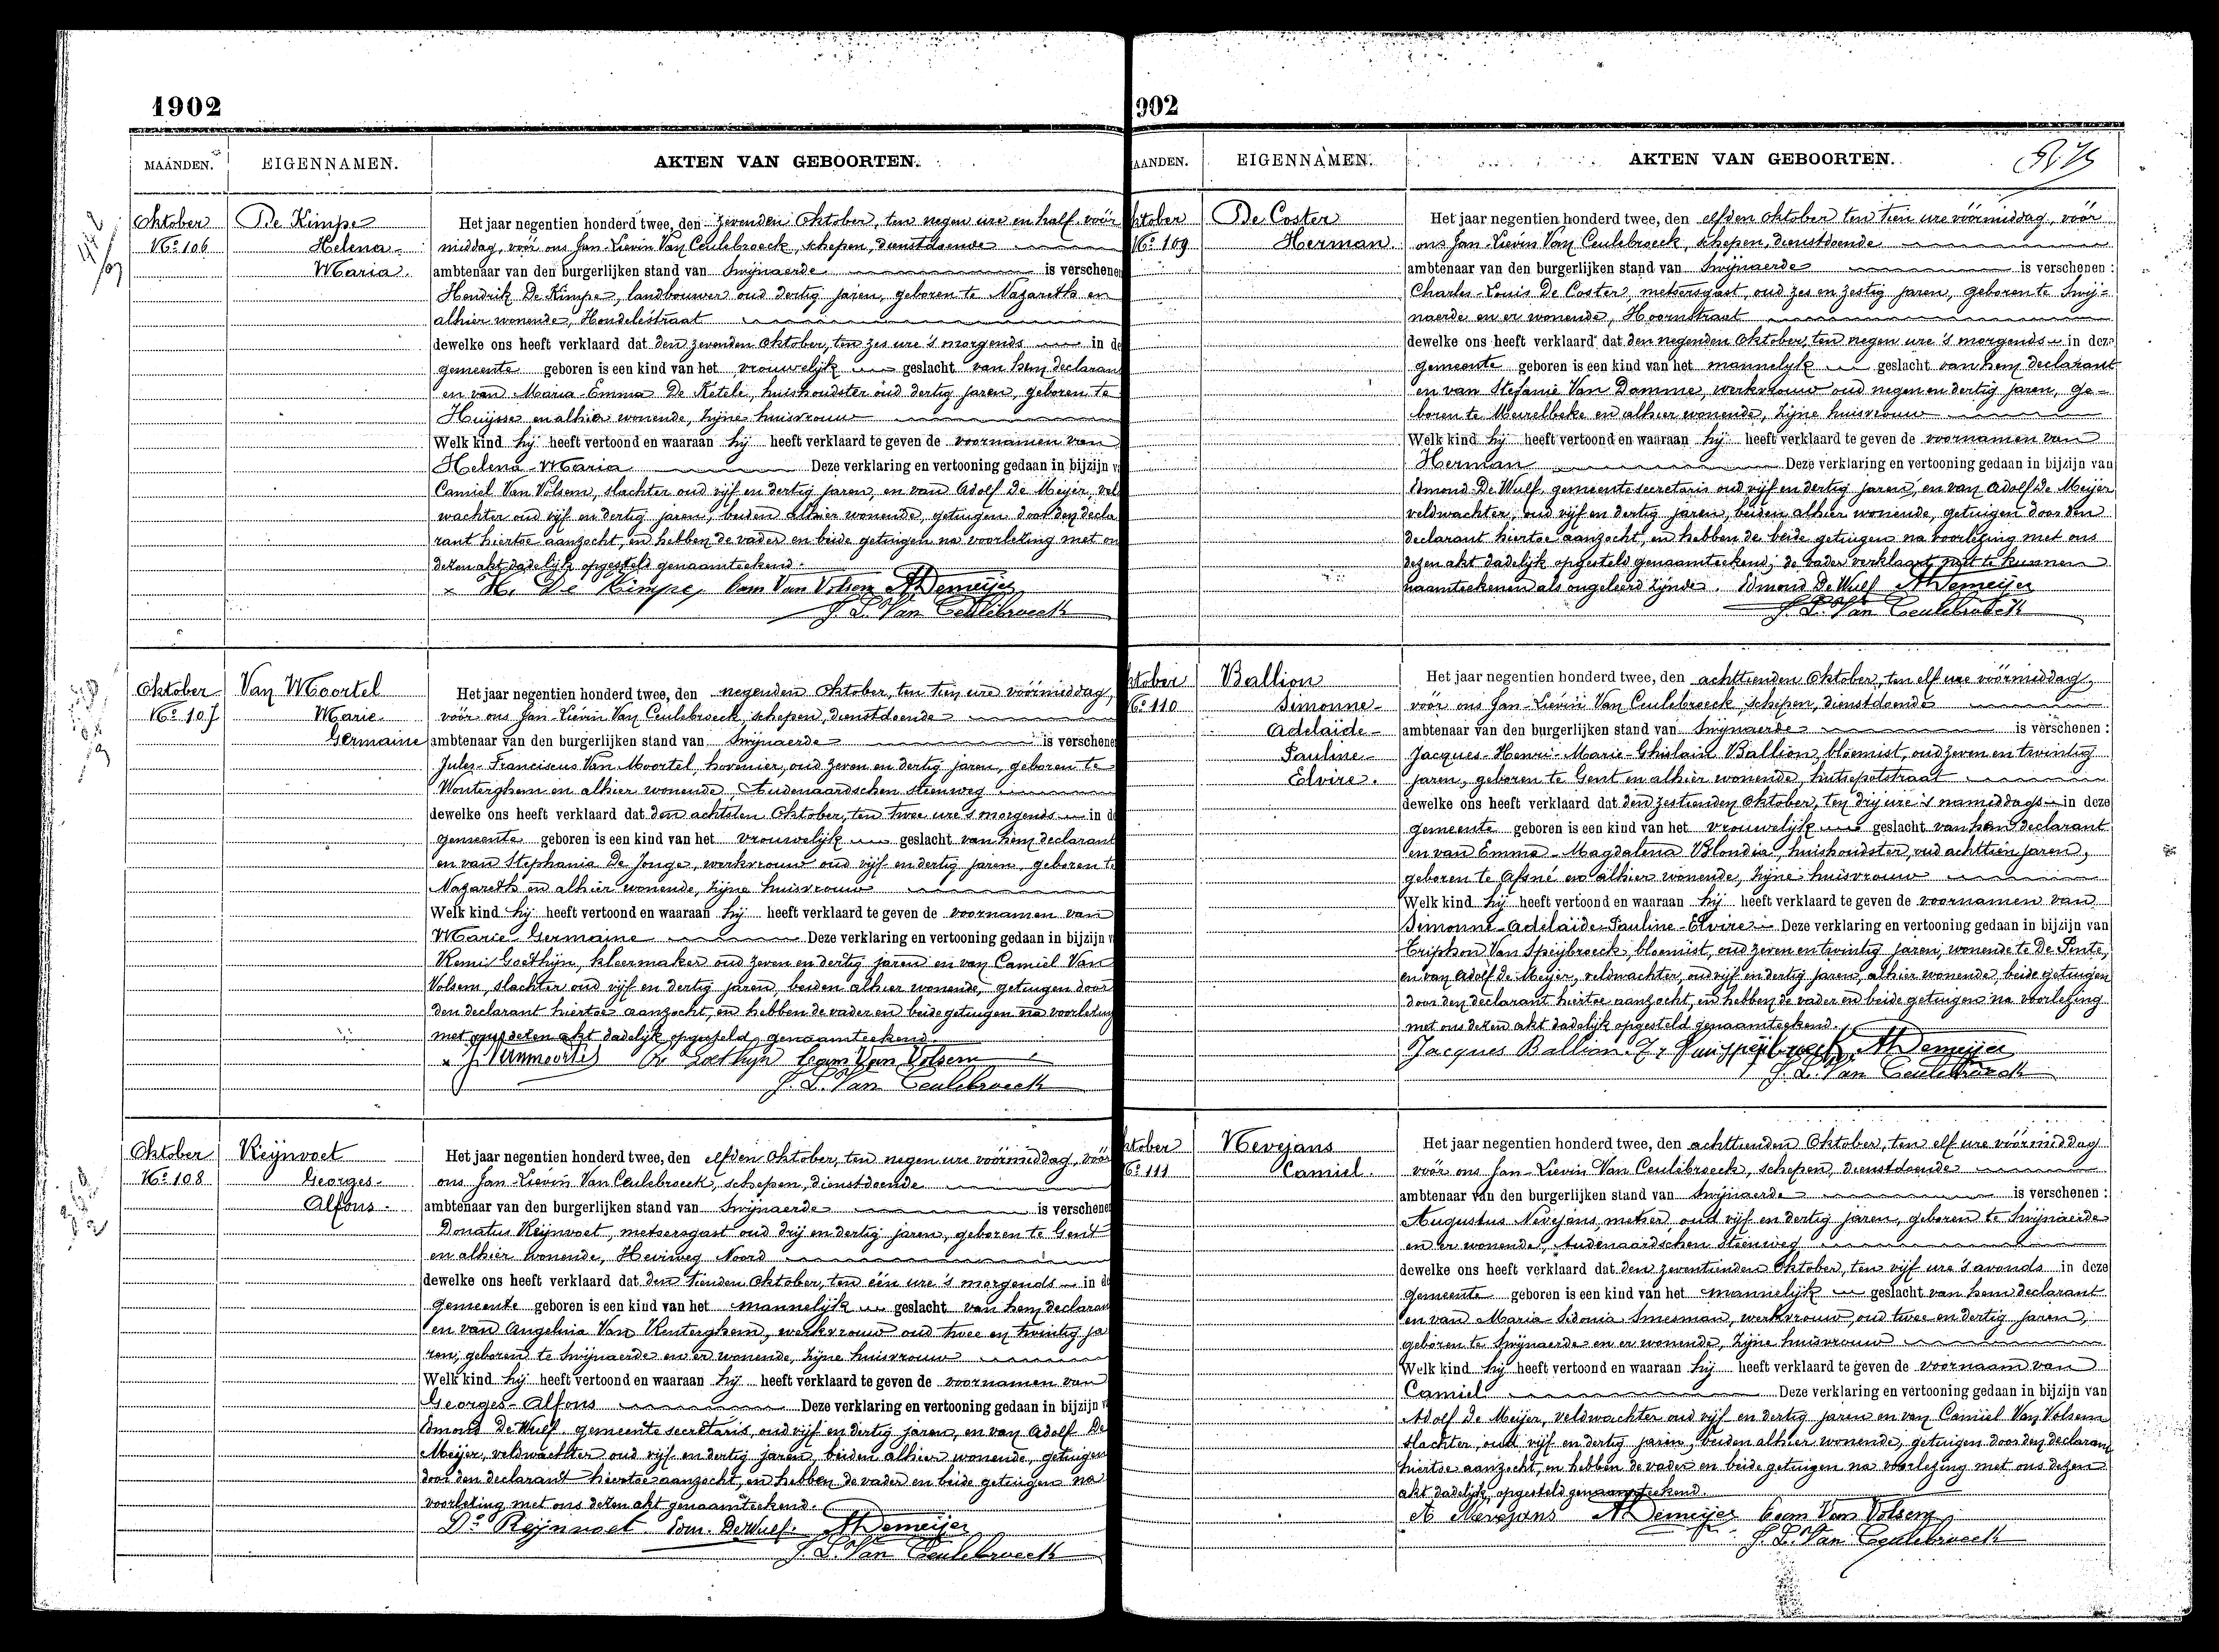 1902
MAANDEN. EIGENNAMEN. AKTEN VAN GEBOORTEN.
Oktober De Kimpe Het jaar negentien honderd twee, den zevenden Oktober, ten negen ure en half voor
No 106 Helena middag, voor ons Jan-Lievin Van Ceulebroeck, schepen, dienstdoende
Maria. ambtenaar van den burgerlijken stand van Swijnaerde is verschenen
Hendrik De Kimpe, landbouwer oud dertig jaren, geboren te Nazareth en
alhier wonende, Hondelestraat
dewelke ons heeft verklaard dat den zevenden Oktober, ten zes ure 's morgends in de
gemeente geboren is een kind van het vrouwelijk geslacht van hem declarant
en van Maria-Emma De Ketele, huishoudster oud dertig jaren, geboren te
Huijse en alhier wonende, zijne huisvrouw
Welk kind hij heeft vertoond en waaraan hij heeft verklaard te geven de voornamen van
Helena-Maria Deze verklaring en vertooning gedaan in bijzijn v
Camiel Van Volsem, slachter oud vijf en dertig jaren, en van Adolf De Meijer, vel
wachter oud vijf en dertig jaren, beiden alhier wonende, getuigen door den decla
rant hiertoe aanzocht, en hebben de vader en beide getuigen na voorlezing met on
dezen akt dadelijk opgesteld genaamteekend.
H. De Kimpe, Cam Van Volsem ADemeijer
J. L. Van Ceulebroeck
Oktober Van Moortel Het jaar negentien honderd twee, den negenden Oktober, ten tien ure voormiddag,
No 107 Marie voor ons Jan-Lievin Van Ceulebroeck, schepen, dienstdoende
Germaine ambtenaar van den burgerlijken stand van Swijnaerde is verschene
Jules-Franciscus Van Moortel, hovenier, oud zeven en dertig jaren, geboren te
Wonterghem en alhier wonende Audenaardschen steenweg
dewelke ons heeft verklaard dat den achtsten Oktober, ten twee ure 's morgends in d
gemeente geboren is een kind van het vrouwelijk geslacht van hem declarant
en van Stephania De Jonge, werkvrouw oud vijf en dertig jaren, geboren te
Nazareth en alhier wonende, zijne huisvrouw
Welk kind hij heeft vertoond en waaraan hij heeft verklaard te geven de voornamen van
Marie-Germaine Deze verklaring en vertooning gedaan in bijzijn v
Remi Goethijn, kleermaker oud zeven en dertig jaren en van Camiel Van
Volsem, slachter oud vijf en dertig jaren, beiden alhier wonende, getuigen door
den declarant hiertoe aanzocht, en hebben de vader en beide getuigen na voorlezing
met ons dezen akt dadelijk opgesteld genaamteekend.
J. Vanmoortel R Goethijn Cam Van Volsem
J. L. Van Ceulebroeck
Oktober Reijnvoet Het jaar negentien honderd twee, den elfden Oktober, ten negen ure voormiddag, voor
No 108 Georges ons Jan-Lievin Van Ceulebroeck, schepen, dienstdoende
Alfons. ambtenaar van den burgerlijken stand van Swijnaerde is verschene
Donatus Reijnvoet, metsersgast oud drij en dertig jaren, geboren te Gent
en alhier wonende, Heirweg Noord
dewelke ons heeft verklaard dat den tienden Oktober, ten één ure 's morgends in d
gemeente geboren is een kind van het mannelijk geslacht van hem declaran
en van Angelina Van Renterghem, werkvrouw oud twee en twintig ja
ren, geboren te Swijnaerde en er wonende, zijne huisvrouw
Welk kind hij heeft vertoond en waaraan hij heeft verklaard te geven de voornamen van
Georges-Alfons Deze verklaring en vertooning gedaan in bijzijn v
Edmond De Wulf gemeente secretaris, oud vijf en dertig jaren, en van Adolf De
Meijer, veldwachter oud vijf en dertig jaren, beiden alhier wonende, getuigen
door den declarant hiertoe aanzocht, en hebben de vader en beide getuigen na
voorlezing met ons dezen akt genaamteekend.
Ds Reijnvoet Edm. DeWulf. ADemeijer
J. L. Van Ceulebroeck
902
AANDEN. EIGENNAMEN. AKTEN VAN GEBOORTEN.
ktober De Coster Het jaar negentien honderd twee, den elfden Oktober ten tien ure voormiddag, voor
No 109 Herman ons Jan-Lievin Van Ceulebroeck, schepen, dienstdoende
ambtenaar van den burgerlijken stand van Swijnaerde is verschenen :
Charles-Louis De Coster, metsersgast, oud zes en zestig jaren, geboren te Swij-
naerde en er wonende, Hoornstraat
dewelke ons heeft verklaard dat den negenden Oktober, ten negen ure 's morgends in deze
gemeente geboren is een kind van het mannelijk geslacht van hem declarant
en van Stefanie Van Damme, werkvrouw oud negen en dertig jaren, ge-
boren te Meirelbeke en alhier wonende, zijne huisvrouw
Welk kind hij heeft vertoond en waaraan hij heeft verklaard te geven de voornamen van
Herman Deze verklaring en vertooning gedaan in bijzijn van
Edmond De Wulf, gemeente secretaris oud vijf en dertig jaren, en van Adolf De Meijer
veldwachter, oud vijf en dertig jaren, beiden alhier wonende, getuigen door den
declarant hiertoe aanzocht, en hebben de beide getuigen na voorlezing met ons
dezen akt dadelijk opgesteld genaamteekend; de vader verklaart niet te kunnen
naamteekenen als ongeleerd zijnde. Edmond De Wulf ADemeijer
J. L. Van Ceulebroeck
ktober Ballion Het jaar negentien honderd twee, den achttienden Oktober, ten elf ure voormiddag,
No 110 Simonne- voor ons Jan-Lievin Van Ceulebroeck, schepen, dienstdoende
Adelaide- ambtenaar van den burgerlijken stand van Swijnaerde is verschenen :
Pauline- Jacques-Henri-Marie-Ghislain Ballion, bloemist, oud zeven en twintig
Elvire. jaren, geboren te Gent en alhier wonende, hutsepotstraat
dewelke ons heeft verklaard dat den zestienden Oktober, ten drij ure 's namiddags in deze
gemeente geboren is een kind van het vrouwelijk geslacht van hem declarant
en van Emma-Magdalena Blondia, huishoudster, oud achttien jaren,
geboren te Afsné en alhier wonende, zijne huisvrouw
Welk kind hij heeft vertoond en waaraan hij heeft verklaard te geven de voornamen van
Simonne-Adelaide-Pauline-Elvire Deze verklaring en vertooning gedaan in bijzijn van
Triphon Van Speijbroeck, bloemist, oud zeven en twintig jaren, wonende te De Pinte,
en van Adolf De Meijer, veldwachter, oud vijf en dertig jaren, alhier wonende, beide getuigen
door den declarant hiertoe aanzocht, en hebben de vader en beide getuigen na voorlezing
met ons dezen akt dadelijk opgesteld genaamteekend.
Jacques Ballion. T. Vanspeijbroeck ADemeijer
J. L. Van Ceulebroeck
ktober Nevejans Het jaar negentien honderd twee, den achttienden Oktober, ten elf ure voormiddag
No 111 Camiel. voor ons Jan-Lievin Van Ceulebroeck, schepen, dienstdoende
ambtenaar van den burgerlijken stand van Swijnaerde is verschenen :
Augustus Nevejans, metser oud vijf en dertig jaren, geboren te Swijnaerde
en er wonende, Audenaardschen Steenweg
dewelke ons heeft verklaard dat den zeventienden Oktober, ten vijf ure 's avonds in deze
gemeente geboren is een kind van het mannelijk geslacht van hem declarant
en van Maria-Sidonia Smesman, werkvrouw, oud twee en dertig jaren,
geboren te Swijnaerde en er wonende, zijne huisvrouw
Welk kind hij heeft vertoond en waaraan hij heeft verklaard te geven de voornaam van
Camiel Deze verklaring en vertooning gedaan in bijzijn van
Adolf De Meijer, veldwachter oud vijf en dertig jaren en van Camiel Van Volsem
slachter, oud vijf en dertig jaren, beiden alhier wonende, getuigen door den declarant
hiertoe aanzocht, en hebben de vader en beide getuigen na voorlezing met ons dezen
akt dadelijk opgesteld genaamteekend
A Nevejans ADemeijer Cam Van Volsem
J. L. Van Ceulebroeck